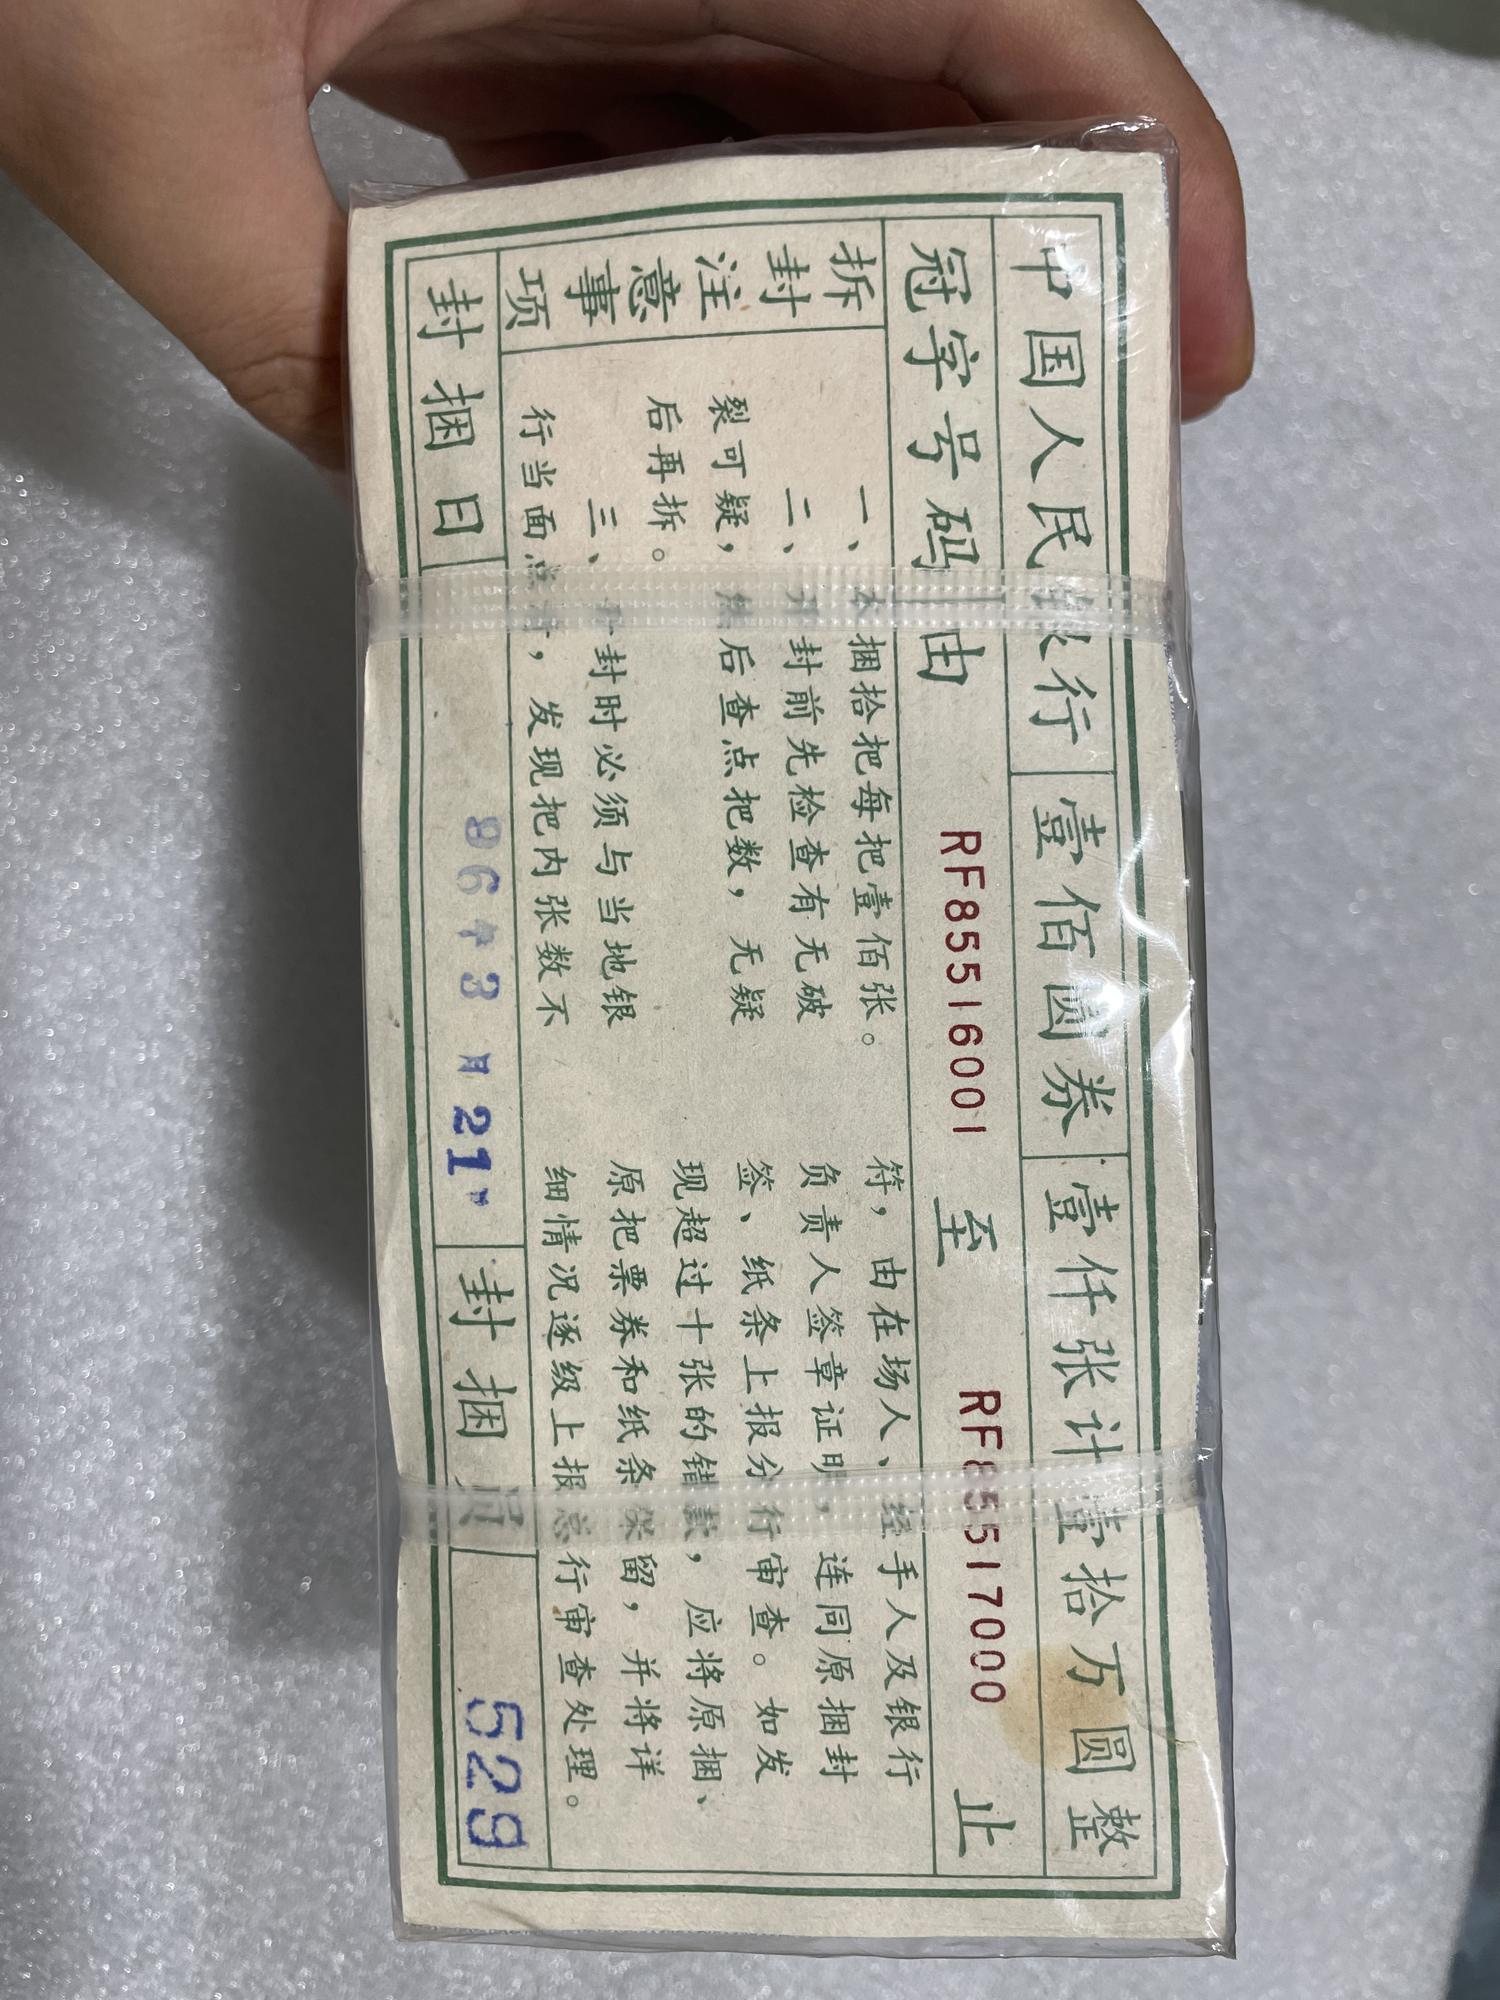 中国人民银行 壹佰圆券 壹仟张计壹拾万圆整
冠字号码 由 RF85516001 至 RF85517000 止
拆封注意事项
一、本捆拾把每把壹佰张。
二、开封前先检查有无破
裂可疑，然后查点把数，无疑
后再拆。
三、封时必须与当地银
行当面点，发现把内张数不
符，由在场人、经手人及银行
负责人签章证明，连同原捆封
签、纸条上报分行审查。如发
现超过十张的错款，应将原捆、
原把票券和纸条保留，并将详
细情况逐级上报总行审查处理。
封捆日 96年3月21日 封捆员 529